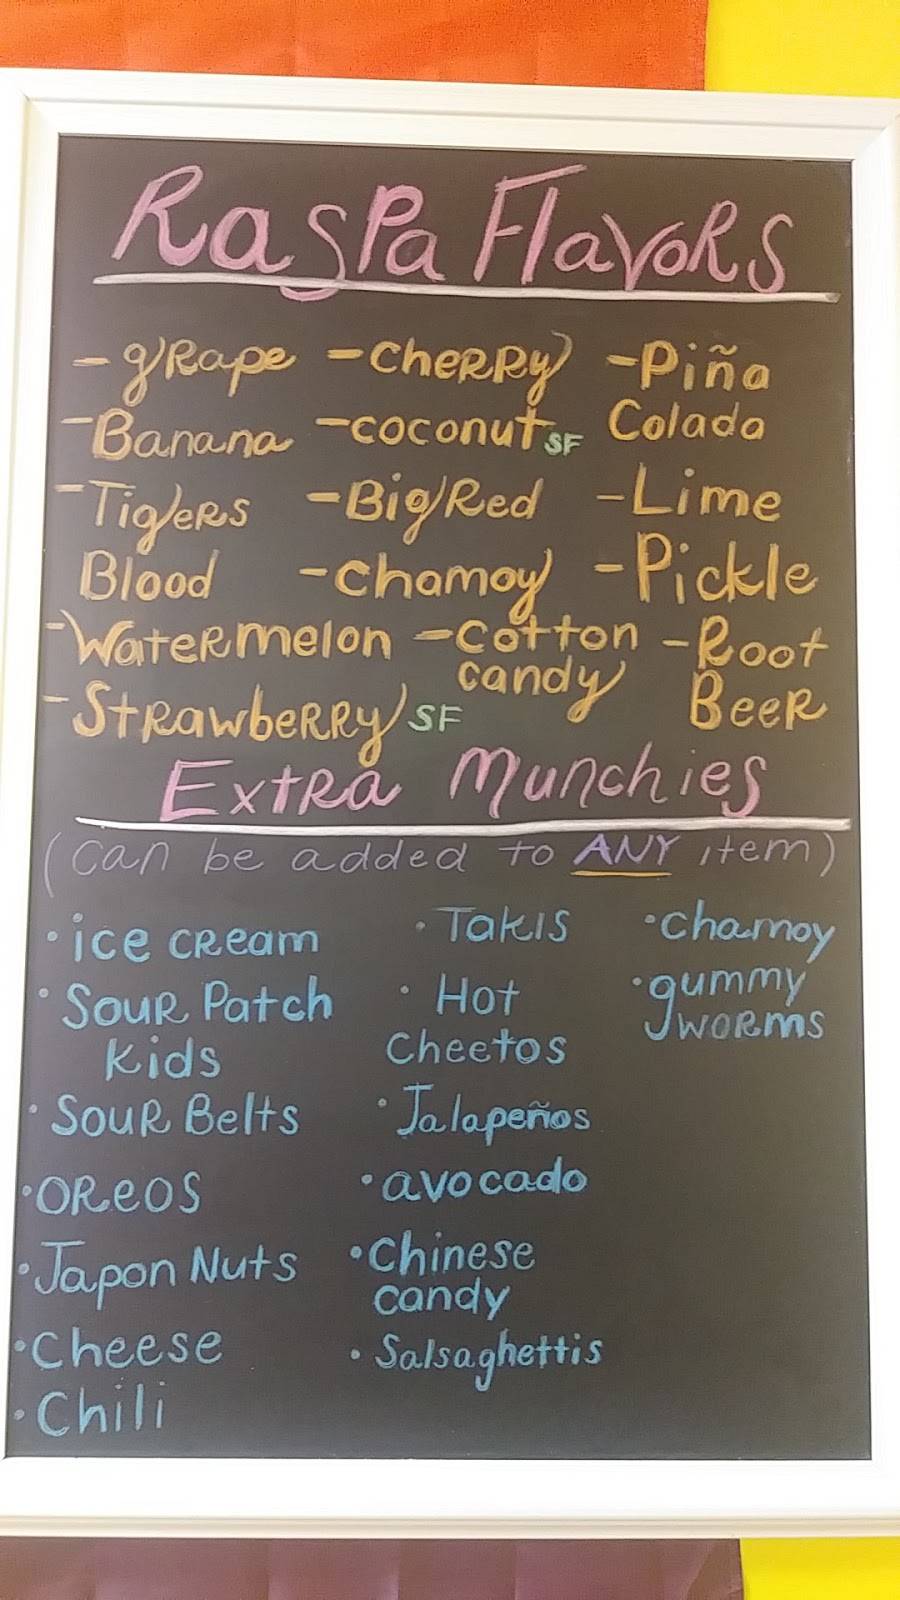 Raspa Flavors
- grape - Cherry - Piña
- Banana - coconut SF Colada
- Tigers - Big Red - Lime
Blood - chamoy - Pickle
- Watermelon - cotton - Root
candy Beer
- Strawberry SF
Extra Munchies
(can be added to ANY item)
• ice cream • Takis • chamoy
• Sour Patch • Hot • gummy
Kids Cheetos worms
• Sour Belts • Jalapeños
• Oreos • avocado
• Japon Nuts • Chinese
candy
• Cheese • Salsaghettis
• Chili